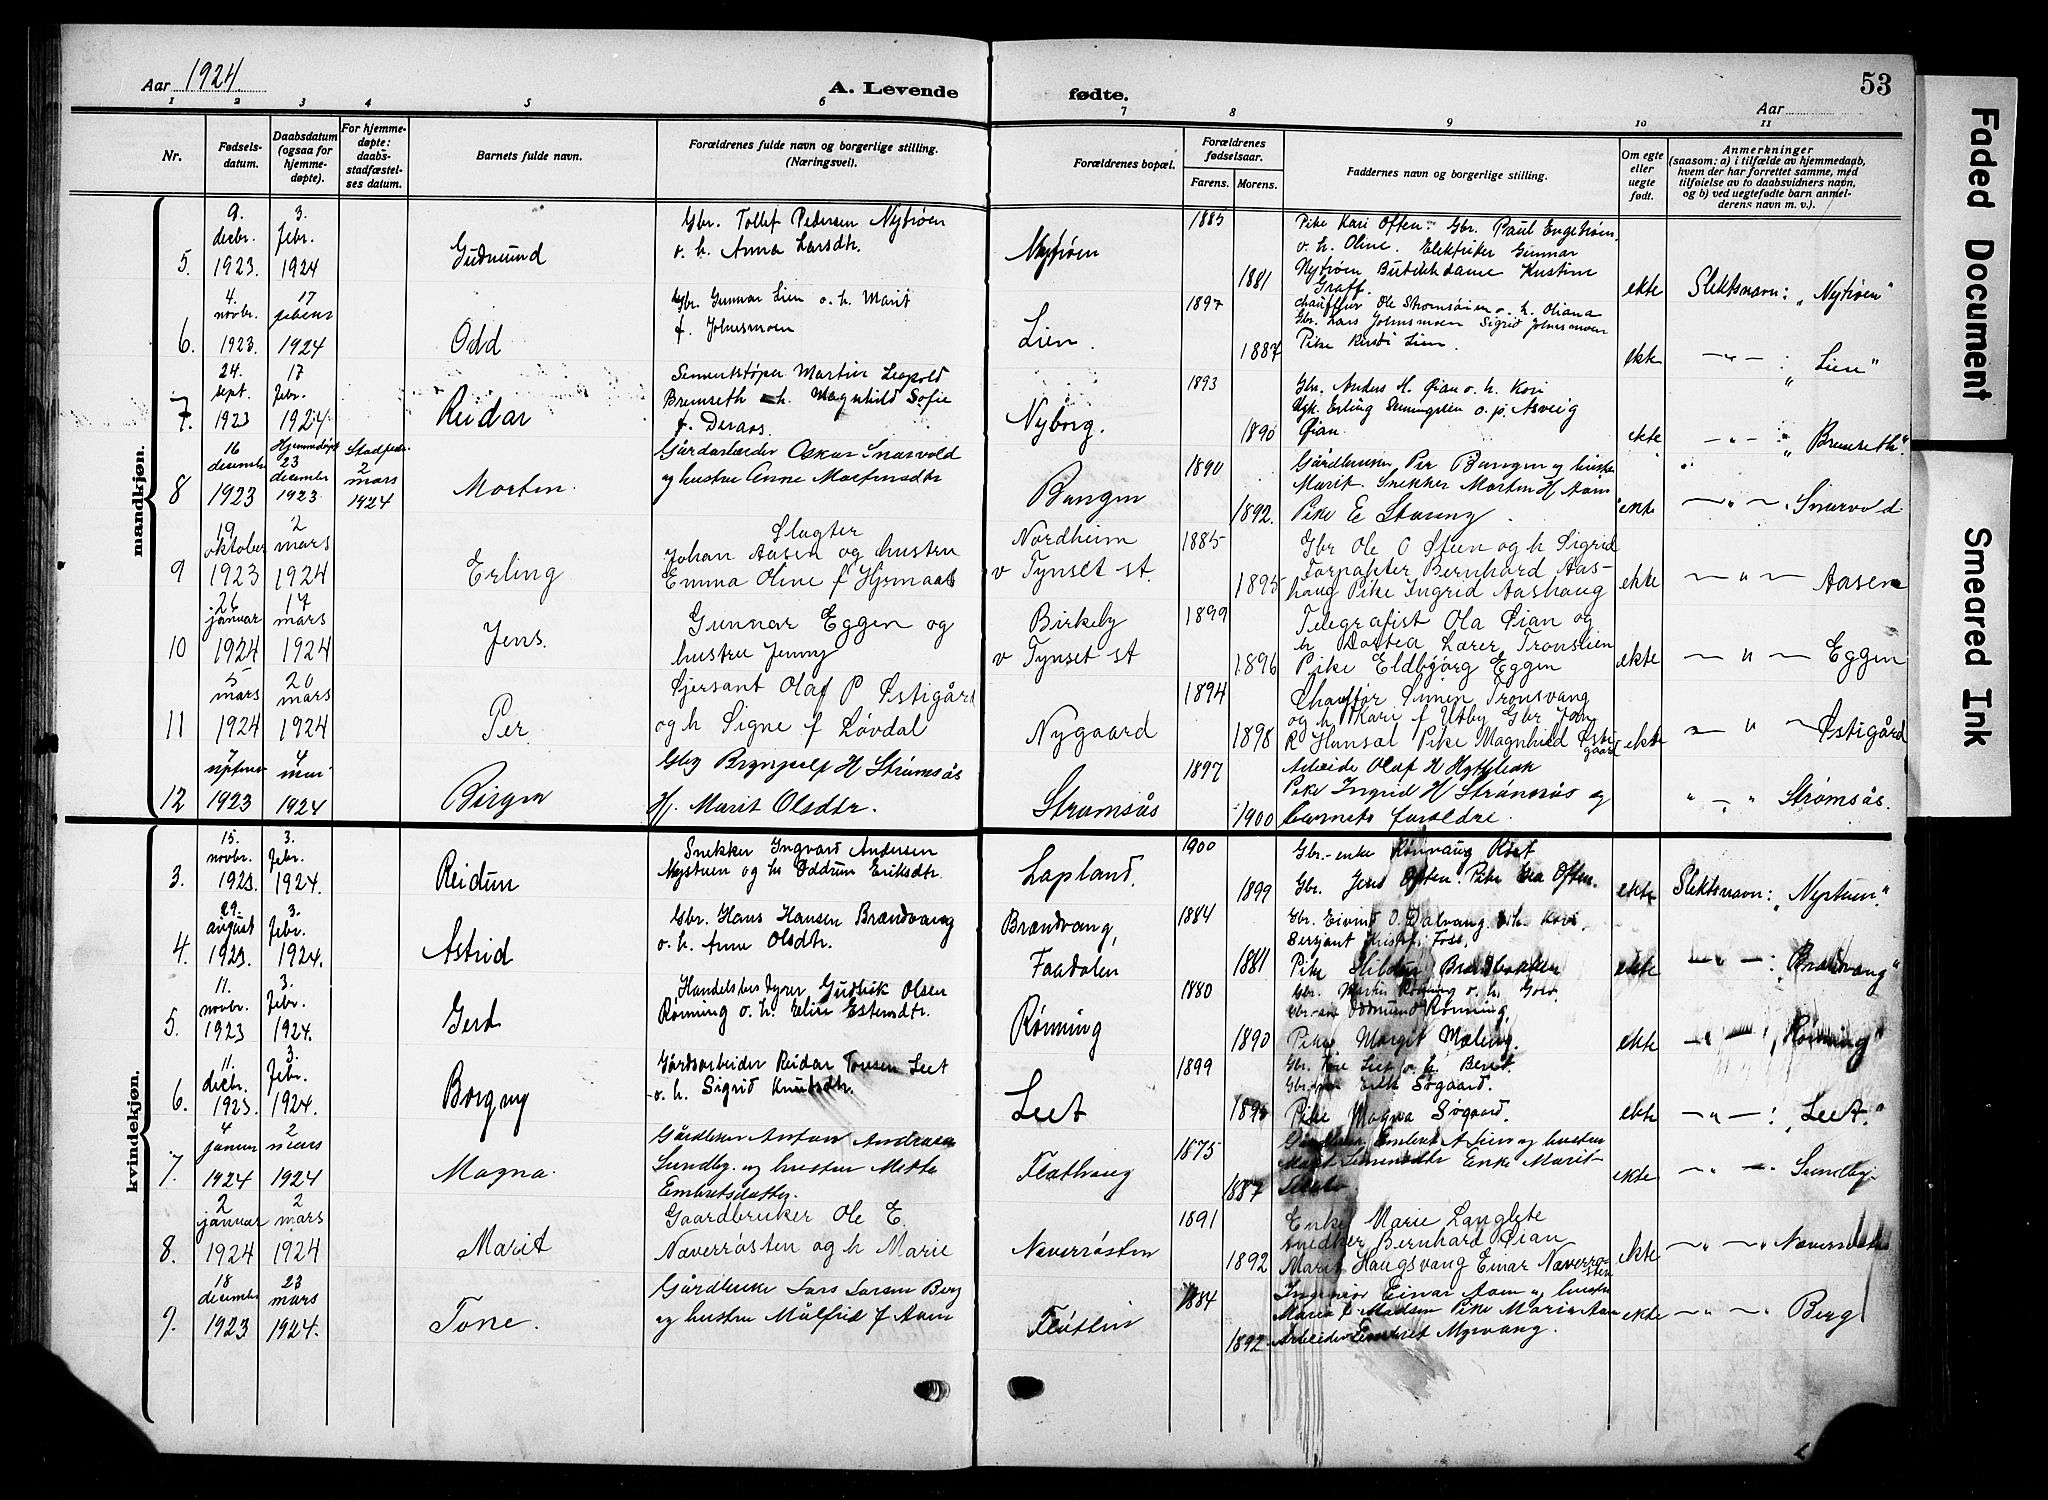 Aar 1924.
A. Levende fødte.
Aar
53
1 2 3 4 5 6 7 8 9 10 11
Nr.
Fødsels-
datum.
Daabsdatum
(ogsaa for
hjemme-
døpte).
For hjemme-
døpte:
daabs-
stadfæstel-
ses datum.
Barnets fulde navn.
Forældrenes fulde navn og borgerlige stilling.
(Næringsvei).
Forældrenes bopæl.
Forældrenes
fødselsaar.
Farens. Morens.
Faddernes navn og borgerlige stilling.
Om egte
eller
uegte
født.
Anmerkninger
(saasom: a) i tilfælde av hjemmedaab,
hvem der har forrettet samme, med
tilføielse av to daabsvidners navn,
og b) ved uegtefødte barn anmel-
derens navn m. v.).
mandkjøn.
5. 9. desbr. 1923. 3. febr. 1924
Gudmund
Gbr. Tollef Pedersen Nytrøen
o. h. Anna Larsdtr.
Nytrøen
1885 1881
Pike Kari Often. Gbr. Paul Engstrøen
o. h. Oline. Elektriker Gunnar
Nytrøen
Graff.
ekte
Slektsnavn: "Nytrøen"
6. 4. novbr. 1923. 17 1924
Odd
Gbr. Gunnar Lien o. h. Marit
f. Johnsmoen
Lien.
1897 1887
Chauffeur Ole Strømsøien o. h. Oliana
Gbr. Lars Johnsmoen Sigrid Johnsmoen
Pike Lien.
ekte
— " — : "Lien"
7. 24. sept. 1923 17 febr. 1924.
Reidar
Sementstøper Martin Leopold
Bremseth o. h. Magnhild Sofie
f. Deraas.
Nyborg.
1893 1890
Gbr. Anders H. Øian o. h. Kari
Erling o. p. Asveig
Øian.
ekte
— " — "Bremseth"
8 16 desember 1923 Hjemmedøpt 23 desember 1923 Stadfestet 2 mars 1924
Morten.
Gårdarbeider Oskar Snærvold
og hustru Anne Mortensdtr
Bangen
1890 1892.
Gårdbruker Per Bangen og hustru
Marit. Snekker Morten H Aaen
Pike E Støreng.
ekte
— " — . Snærvold
9 19 oktober 1923 2 mars 1924
Erling
Slagter
Johan Aasen og hustru
Emma Oline f Hjemaas
Nordheim
v Tynset st.
1885 1895
Gbr Ole O Steen og h Sigrid
Forpagter Bernhard Aas-
haug Pike Ingrid Aashaug
ekte
— " — Aasen
10 26 januar 1924 17 mars 1924
Jens.
Gunnar Eggen og
hustru Jenny
Birkeby
v Tynset st
1899 1896
Telegrafist Ola Øian og
h Dortea Lærer Tronslien
Pike Eldbjørg Eggen
ekte
— " — Eggen
11 5 mars 1924 20 mars 1924
Per
Sjersant Olaf P Østigård
og h Signe f Løvdal
Nygaard
1894 1898
Chauffør Simen Tronsvang
og h Kari f Utby Gbr Jon
R Hansæl Pike Magnhild Østi-
gaard
ekte
— " — Østigård
12 7 1923 4 mai 1924
Birger
Gbr Brynjulf H Strømsås
H. Marit Olsdtr.
Strømsås
1897 1900
Arbeider Olaf H Hyttebak
Pike Ingrid H Strømsås og
barnets foreldre.
" — " Strømsås.
kvindekjøn.
3. 15. novbr. 1923. 3. febr. 1924.
Reidun
Snekker Ingvard Andersen
Nystuen og h. Oddrun Eriksdtr.
Lapland.
1900 1899
Gbr.-enke Rønnaug Røst
Gbr. Jens Often. Pike Often.
ekte
Slektsnavn: "Nystuen".
4. 29. august 1923. 3. febr. 1924.
Astrid
Gbr. Hans Hansen Brandvang
o. h. Anne Olsdtr.
Brandvang,
Faadalen
1884 1881
Gbr. Eivind O. Dalvang o. h. Kari.
Sersjant Kristof. Foss.
Pike Hilda Brandbakken
ekte
— " — : "Brandvang"
5. 11. novbr. 1923 3. febr. 1924.
Gerd
Handelsbestyrer Gudleik Olsen
Rønning o. h. Elise Estensdtr.
Rønning
1880 1890
Gbr. Martin Rønning o. h. Goro.
Oddmund Rønning,
Pike Margit Mæling.
ekte
— " — "Rønning"
6. 11. desbr. 1923. 3. febr. 1924.
Borgny
Gårdsarbeider Reidar Toresen Leet
o. h. Sigrid Knutsdtr.
Leet
1899 1895
Gbr. Tore Leet o. h. Berit.
Erik Søgaard.
Pike Magna Søgaard.
ekte
— " — : "Leet."
7. 4 januar 1924 2 mars 1924
Magna.
Gårdbruker Anton Andreasen
Sundby. og hustru Mette
Embretsdatter.
Flathaug
1875 1887
Gårdbruker Embret A Lien og hustru
Marit Simensdtr Enke Marit
ekte
— " — . Sundby.
8. 2 januar 1924 2 mars 1924
Marit
Gaardbruker Ole E.
Næverrøsten og h Marie
Næverrøsten
1891 1892
Enke Marie Langlete
Snedker Bernhard Øian
Marit Haugsvang Einar Næverrø-
sten
ekte
— " — " Næverrøsten
9. 18 desember 1923 23 mars 1924.
Tone.
Gårdbruker Lars Larsen Berg
og hustru Målfrid f Aaen
Fløtten
1884 1892.
Ingeniør Einar Aaen og hustru
Maria f Madsen Pike Marie Aaen
Arbeider Embret Myrvang.
ekte
— " — " Berg
Faded Document
Smeared Ink